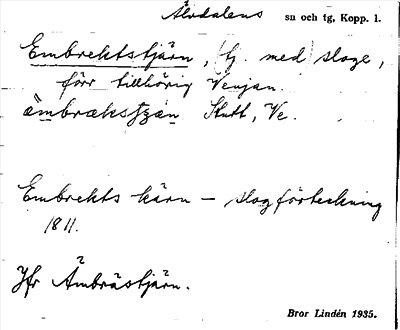 Älvdalens sn och tg, Kopp. l.
Embrektstjärn, (tj. med) sloge,
förr tillhörig Venjan.
Slutt, Ve.
Embrekts kärn – slogförteckning
1811.
Jfr Ämbrästjärn.
Bror Lindén 1935.